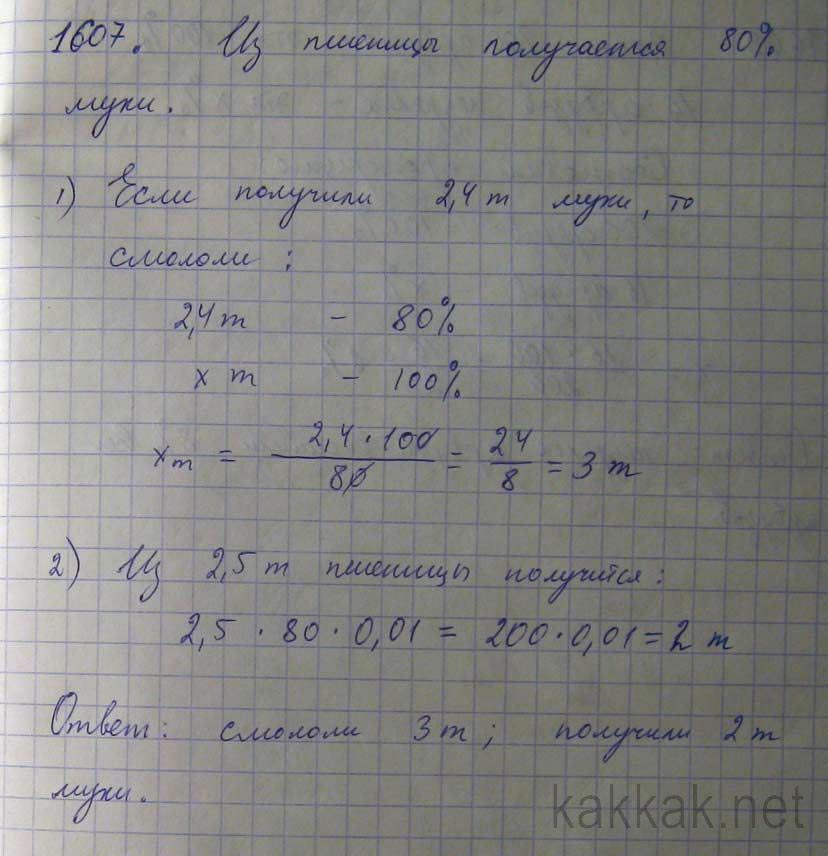 1607. Из пшеницы получается 80%
муки.
1) Если получили 2,4 т муки, то
смололи :
2,4 т - 80%
x т - 100%
x т = 2,4 · 100 / 80 = 24 / 8 = 3 т
2) Из 2,5 т пшеницы получится:
2,5 · 80 · 0,01 = 200 · 0,01 = 2 т
Ответ: смололи 3 т; получили 2 т
муки.
kakkak.net